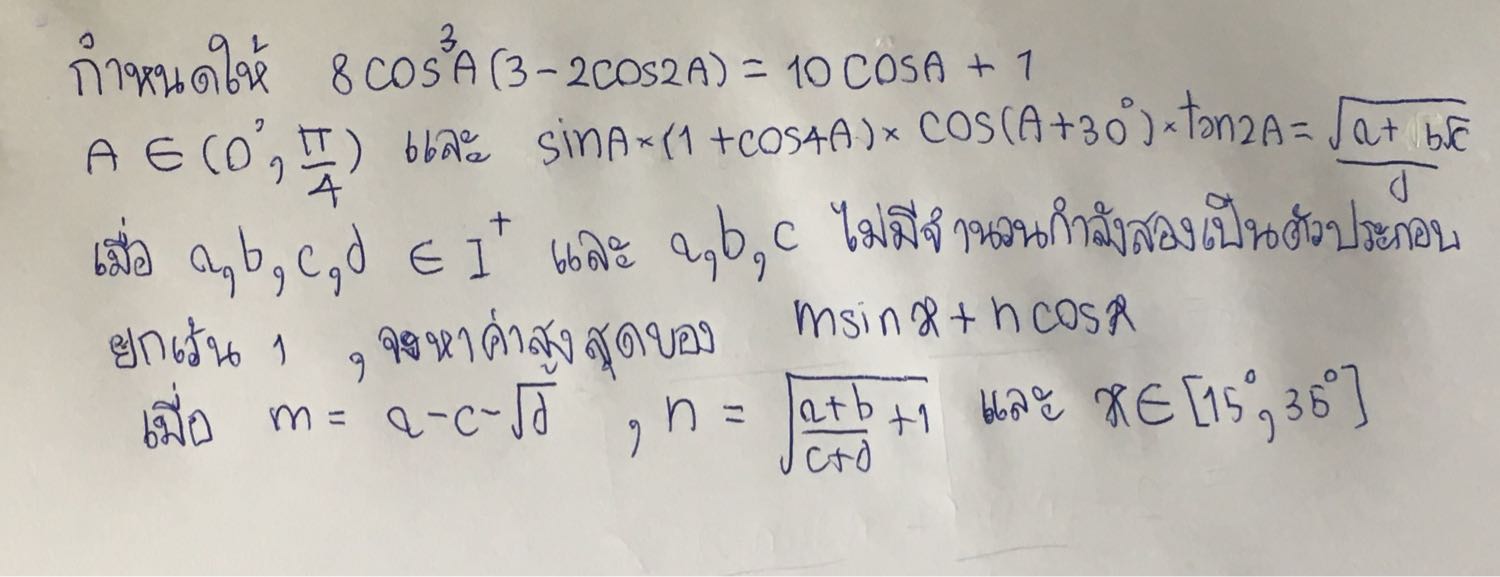 กำหนดให้ 8cos³A(3-2cos2A) = 10cosA + 1
A ∈ (0°, π/4) และ sinA×(1+cos4A)×cos(A+30°)×tan2A = √(a+b√c)/d
เมื่อ a,b,c,d ∈ I⁺ และ a,b,c ไม่มีจำนวนกำลังสองเป็นตัวประกอบ
ยกเว้น 1 , จะหาค่าสูงสุดของ msinx + ncosx
เมื่อ m = a-c-√d , n = √((a+b)/(c+d)+1) และ x ∈ [15°, 35°]